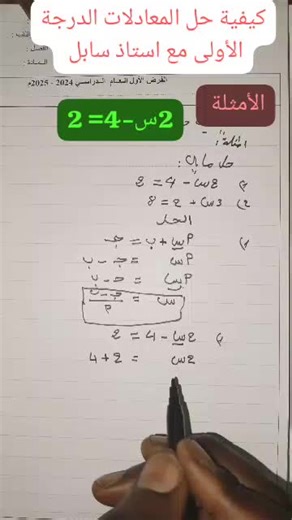 كيفية حل المعادلات الدرجة
الأولى مع استاذ سابل
الفرض الأول للعام الدراسي 2024 - 2025م
المادة
الأمثلة
2س-4= 2
حل مايلي:
2س - 4 = 2
3س + 2 = 8
الحل
أس + ب = جـ
أس = جـ - ب
أس = جـ - ب
س = جـ - ب / أ
2س - 4 = 2
2س = 2 + 4